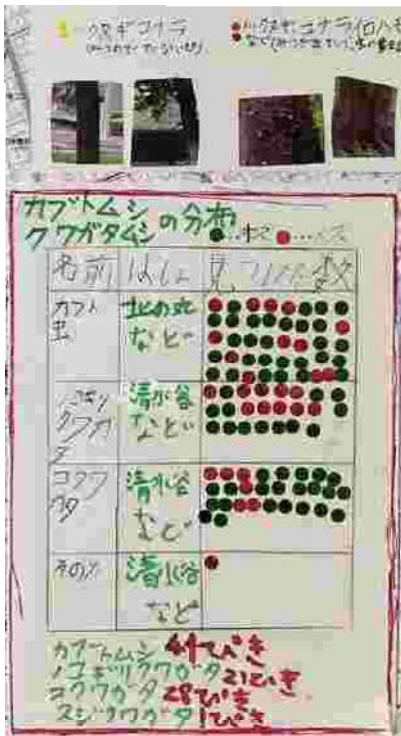 …クヌギコナラ
…クヌギ、コナラ、イロハモ
など
カブトムシ
クワガタムシ の分布
…オス …メス
名前 ばしょ 見つけた数
カブト虫 北の丸など
ノコギリクワガタ 清水谷など
コクワガタ 清水谷など
その他 清水谷など
カブトムシ 44ひき
ノコギリクワガタ 21ぴき
コクワガタ 28ぴき
スジクワガタ 1ぴき